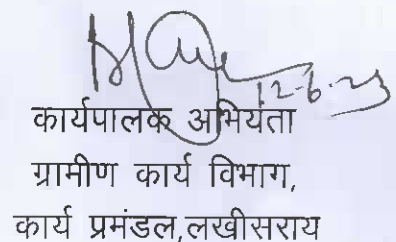 12-6-23
कार्यपालक अभियंता
ग्रामीण कार्य विभाग,
कार्य प्रमंडल,लखीसराय